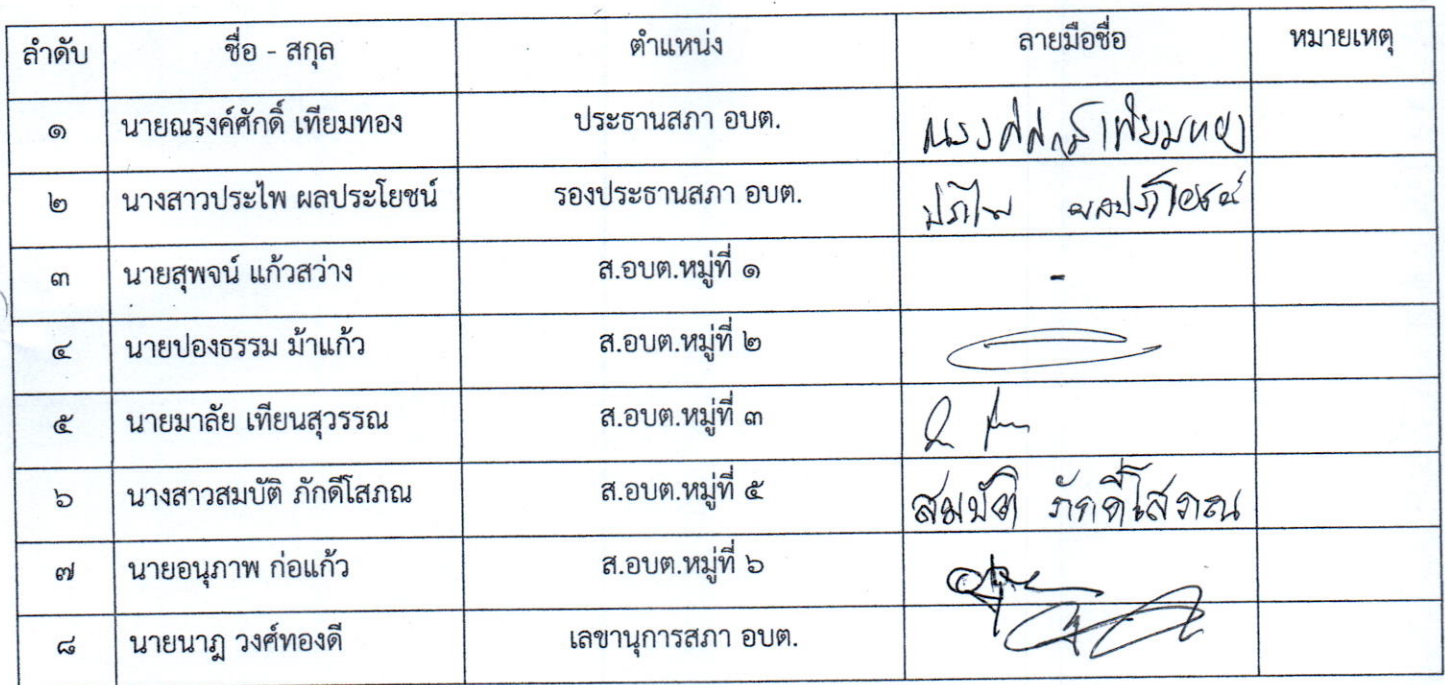 ลำดับ ชื่อ - สกุล ตำแหน่ง ลายมือชื่อ หมายเหตุ
๑ นายณรงค์ศักดิ์ เทียมทอง ประธานสภา อบต. ณรงค์ศักดิ์ เทียมทอง
๒ นางสาวประไพ ผลประโยชน์ รองประธานสภา อบต. ประไพ ผลประโยชน์
๓ นายสุพจน์ แก้วสว่าง ส.อบต.หมู่ที่ ๑ -
๔ นายปองธรรม ม้าแก้ว ส.อบต.หมู่ที่ ๒
๕ นายมาลัย เทียนสุวรรณ ส.อบต.หมู่ที่ ๓
๖ นางสาวสมบัติ ภักดีโสภณ ส.อบต.หมู่ที่ ๕ สมบัติ ภักดีโสภณ
๗ นายอนุภาพ ก่อแก้ว ส.อบต.หมู่ที่ ๖
๘ นายนาฎ วงศ์ทองดี เลขานุการสภา อบต.